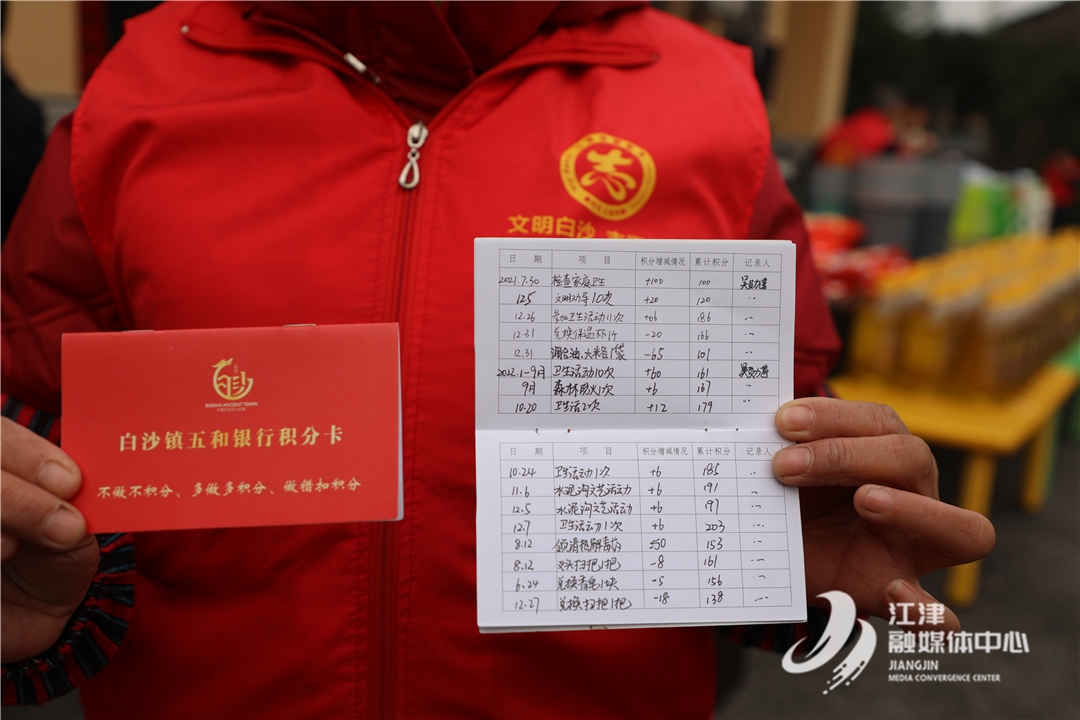 文明白沙
BAISHA ANCIENT TOWN
白沙镇五和银行积分卡
不做不积分、多做多积分、做错扣积分
日 期 项 目 积分增减情况 累计积分 记录人
2021.7.30 检查家庭卫生 +100 100
12.5 文明劝导10次 +20 120 〃
12.26 参加卫生活动11次 +66 186 〃
12.31 兑换保温杯1个 -20 166 〃
12.31 调合油、大米各1袋 -65 101 〃
2022.1-9月 卫生活动10次 +60 161
9月 森林防火1次 +6 167 〃
10.20 卫生活2次 +12 179 〃
日 期 项 目 积分增减情况 累计积分 记录人
10.24 卫生活动1次 +6 185 〃
11.6 水泥沟文艺活动 +6 191 〃
12.5 水泥沟文艺活动 +6 197 〃
12.7 卫生活动1次 +6 203 〃
8.12 50 153 〃
8.12 扫把1把 -8 161 〃
6.24 兑换香皂1块 -5 156 〃
12.27 兑换扫把1把 -18 138 〃
江津
融媒体中心
JIANGJIN
MEDIA CONVERGENCE CENTER